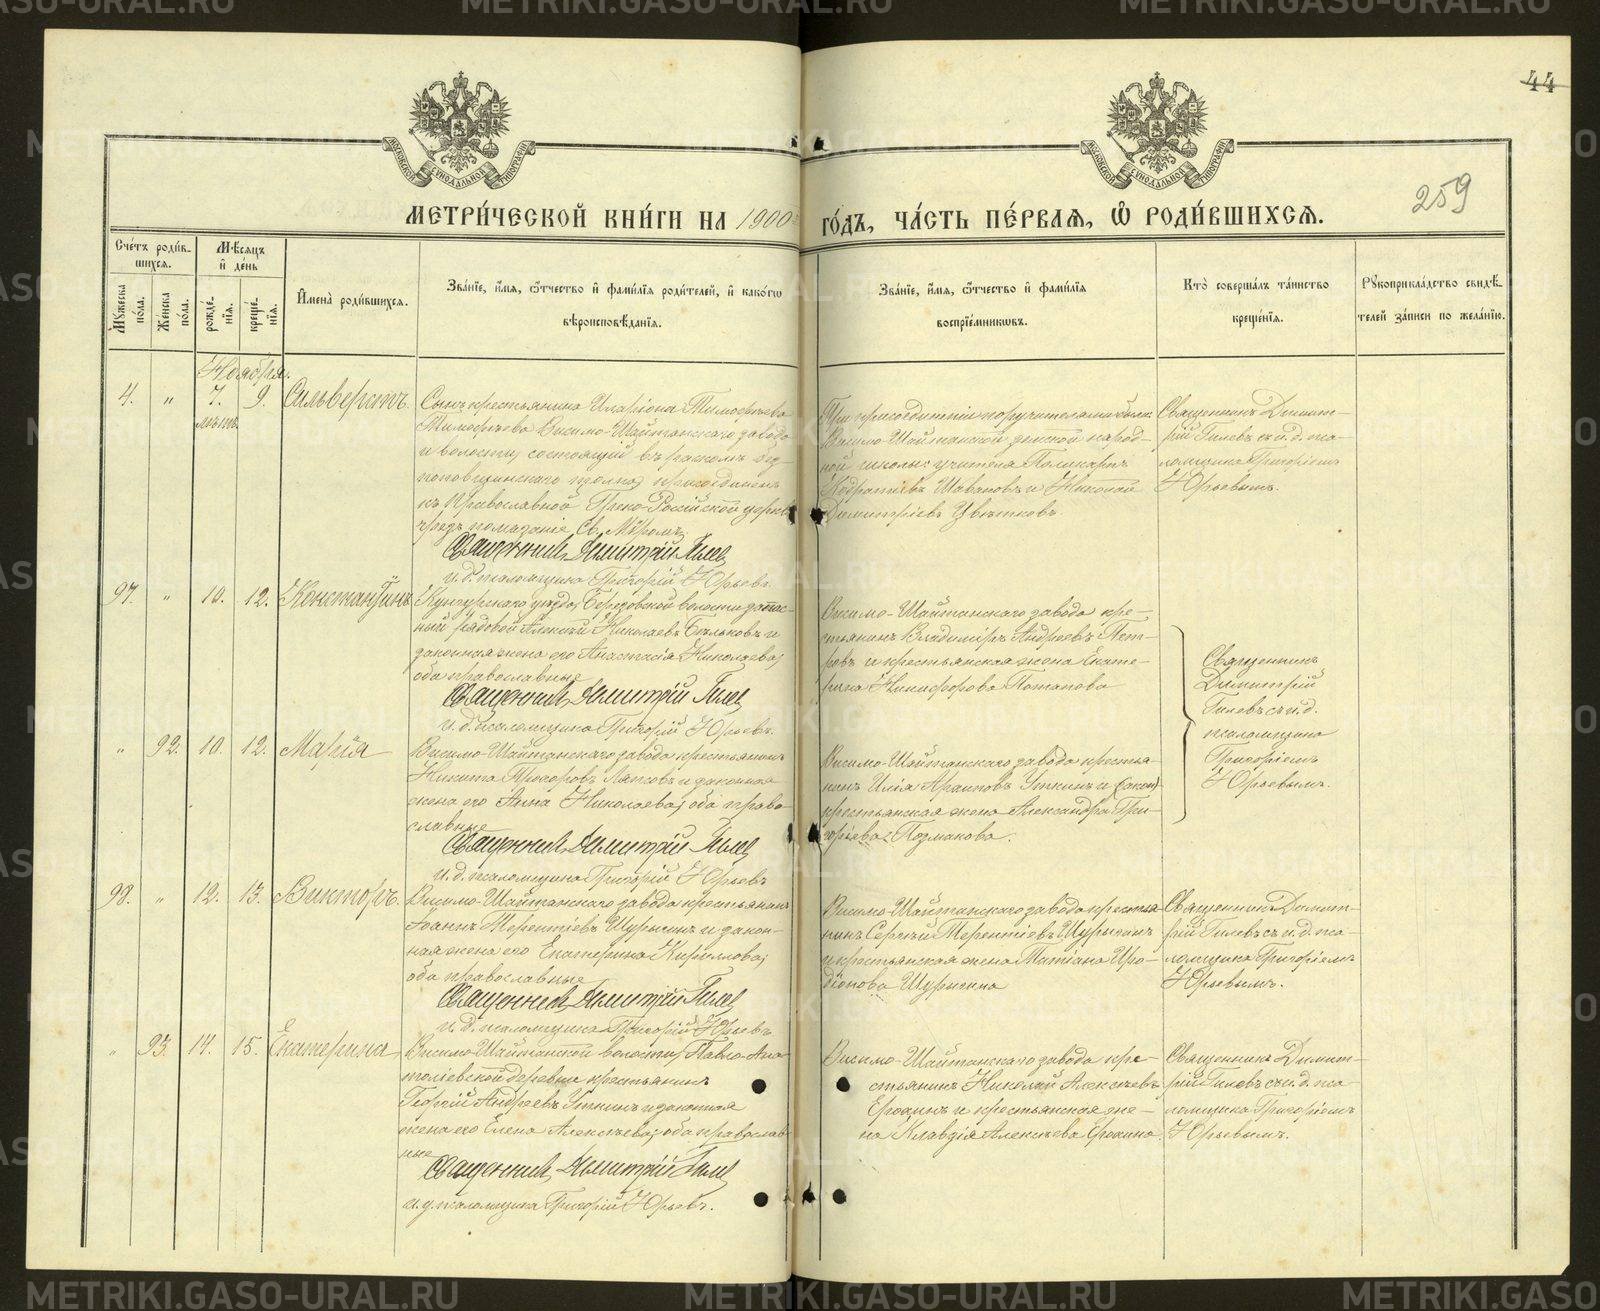 44
259
МОСКОВСКОЙ СѴНОДАЛЬНОЙ ТИПОГРАФІИ
МОСКОВСКОЙ СѴНОДАЛЬНОЙ ТИПОГРАФІИ
МЕТРИ́ЧЕСКОЙ КНИ́ГИ НА 1900 ГО́ДЪ, ЧА́СТЬ ПЕ́РВАѦ, Ѡ҆ РОДИ́ВШИХСѦ.
Сче́тъ роди́в-
шихсѧ.
Мꙋ́жеска по́ла.
Же́нска по́ла.
Мѣ́сѧцъ и҆ де́нь
рожде́-нїѧ.
креще́-нїѧ.
И҆мена̀ роди́вшихсѧ.
Зва́нїе, и҆́мѧ, ѻ҆́тчество и҆ фами́лїѧ роди́телей, и҆ како́гѡ
вѣроисповѣ́данїѧ.
Зва́нїе, и҆́мѧ, ѻ҆́тчество и҆ фами́лїѧ
воспрїе́мникѡвъ.
Кто̀ соверша́лъ та́инство
креще́нїѧ.
Рꙋкоприкла́дство свидѣ́-
телей за́писи по жела́нїю.
Ноября.
4. " 7. 9. Сильверстъ.
лѣтъ
Сынъ крестьянина Иларіона Тимофѣева
Тимофѣева Висимо-Шайтанскаго завода
и волости, состоящій въ расколѣ
поповщинскаго толка присоединенъ
къ Православной Греко-Россійской церкви
чрезъ помазаніе Св. Мѵромъ
Священникъ Димитрій Гилев
и. д. псаломщика Григорій Юрьевъ
При присоединеніи поручителями были
Висимо-Шайтанской земской народ-
ной школы учителя Поликарпъ
Шавановъ и Николай
Димитріевъ Цвѣтковъ.
Священникъ Димит-
рій Гилевъ съ и. д. пса-
ломщика Григоріемъ
Юрьевымъ.
97. " 10. 12. Константинъ
Кунгурскаго уѣзда, Березовской волости запас-
ный рядовой Алексѣй Николаевъ Бѣльковъ и
законная жена его Анастасія Николаева,
оба православные
Священникъ Димитрій Гилев
и. д. псаломщика Григорій Юрьевъ.
Висимо-Шайтанскаго завода кре-
стьянинъ Владиміръ Андреевъ Пет-
ровъ и крестьянская жена Екате-
рина Никифорова Потапова
Священникъ
Димитрій
Гилевъ съ и. д.
псаломщика
Григоріемъ
Юрьевымъ.
" 92. 10. 12. Марія
Висимо-Шайтанскаго завода крестьянинъ
Никита Прохоровъ и законная
жена его Анна Николаева, оба право-
славные
Священникъ Димитрій Гилев
и. д. псаломщика Григорій Юрьевъ
Висимо-Шайтанскаго завода крестья-
нинъ Илія Уткинъ и
крестьянская жена Александра Гри-
горьева Позмакова.
98. " 12. 13. Викторъ.
Висимо-Шайтанскаго завода крестьянинъ
Іоаннъ Терентіевъ Шурыгинъ и закон-
ная жена его Екатерина Кириллова,
оба православные
Священникъ Димитрій Гилев
и. д. псаломщика Григорій Юрьевъ
Висимо-Шайтанскаго завода крестья-
нинъ Сергѣй Терентіевъ Шурыгинъ
и крестьянская жена Татіана
Шуригина
Священникъ Димит-
рій Гилевъ съ и. д. пса-
ломщика Григоріемъ
Юрьевымъ.
" 93. 14. 15. Екатерина
Висимо-Шайтанской волости, Павло-Ана-
толіевской деревни крестьянинъ
Георгій Андреевъ Уткинъ и законная
жена его Елена Алексѣева, оба православ-
ные
Священникъ Димитрій Гилев
и. д. псаломщика Григорій Юрьевъ.
Висимо-Шайтанскаго завода кре-
стьянинъ Николай Алексѣевъ
Ерохинъ и крестьянская же-
на Клавдія Алексѣева Ерохина.
Священникъ Димит-
рій Гилевъ съ и. д. пса-
ломщика Григоріемъ
Юрьевымъ.
METRIKI.GASO-URAL.RU